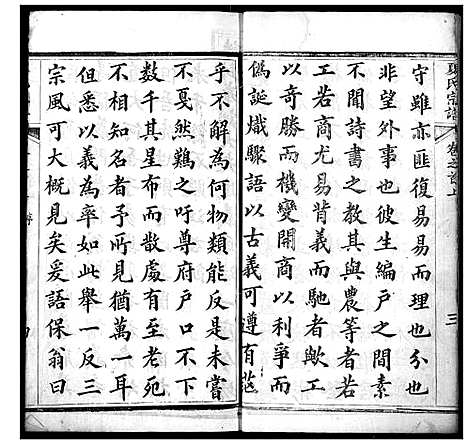 夏氏宗譜 卷之首上 三
守雖亦匪復易易而理也分也
非望外事也彼生編戶之間素
不聞詩書之教其與農等者若
工若商尤易背義而馳者歟工
以奇勝而機變開商以利爭而
僞誕熾驟語以古義可遵有茫
乎不解為何物類能反是未嘗
不戛然難之吁尊府戶口不下
數千其星布而散處有至老死
不相知名者予所見猶萬一耳
但悉以義為率如此舉一反三
宗風可大概見矣爰語保翁曰